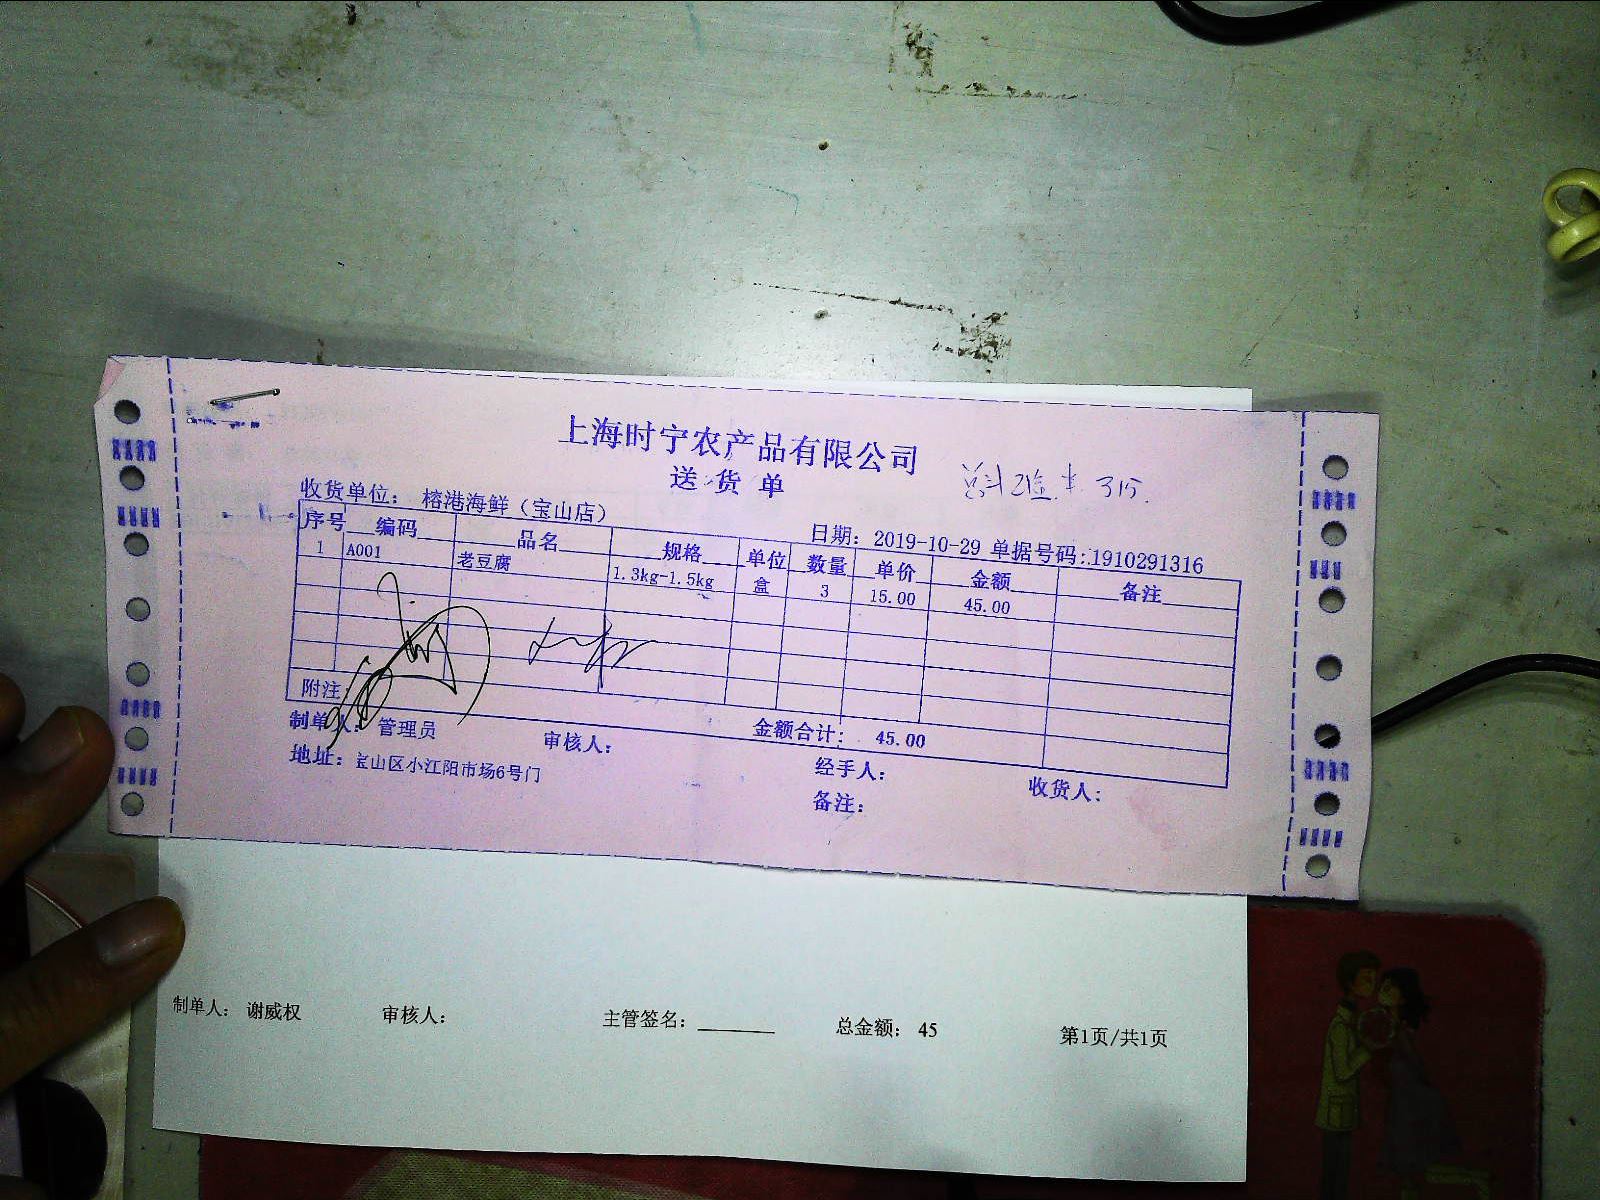 上海时宁农产品有限公司
送货单
收货单位: 榕港海鲜（宝山店）
日期: 2019-10-29 单据号码: 1910291316
序号 编码 品名 规格 单位 数量 单价 金额 备注
1 A001 老豆腐 1.3kg-1.5kg 盒 3 15.00 45.00
附注
制单人: 管理员 审核人: 金额合计: 45.00
地址: 宝山区小江阳市场6号门 经手人: 收货人:
备注:
制单人: 谢威权 审核人: 主管签名: 总金额: 45 第1页/共1页